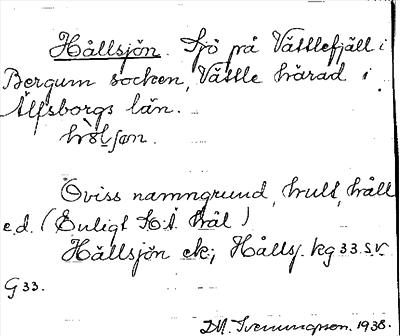 Hållsjön. Sjö på Vättlefjäll i
Bergum socken, Vättle härad i
Älfsborgs län.
Oviss namngrund, hult, håll
e.d. (Enligt
Hållsjön ek; Hållsj. kg 33 SV
G 33.
1938.